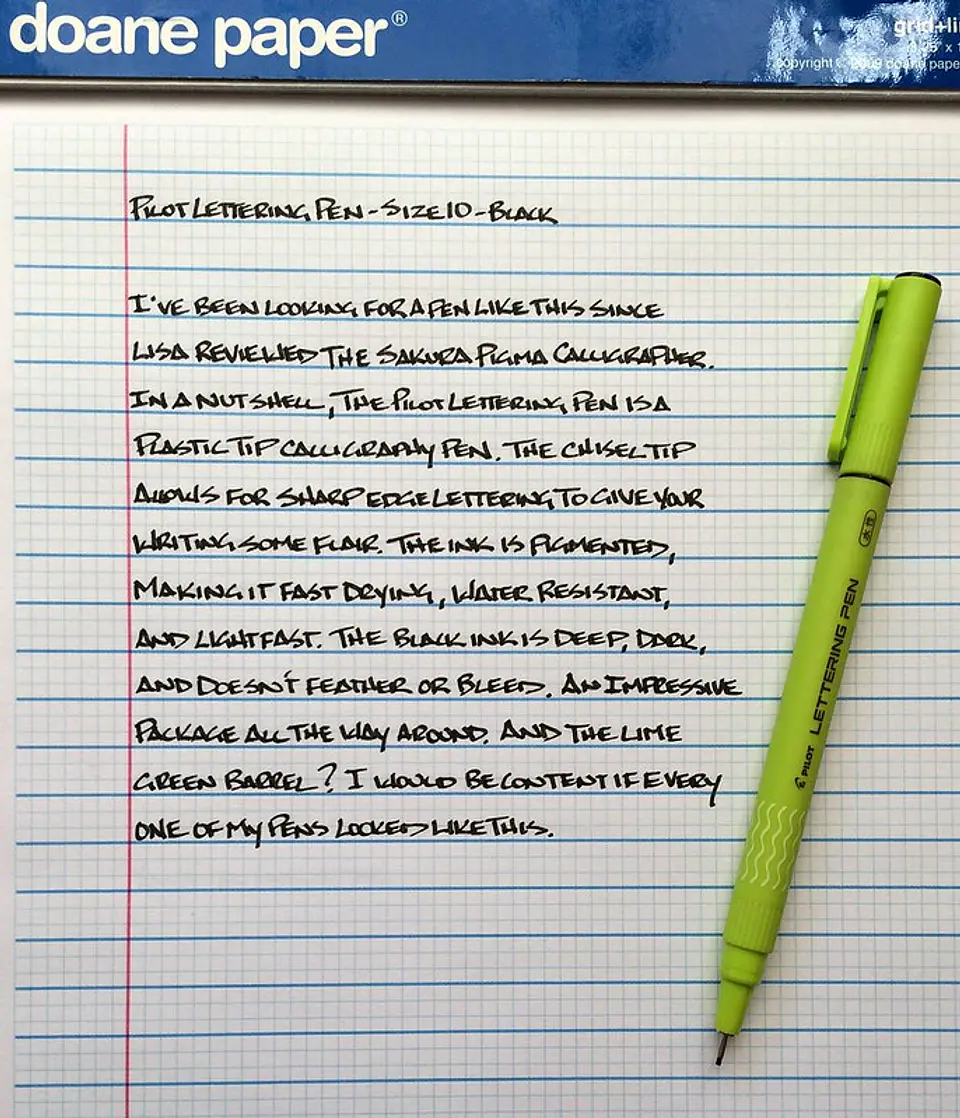 doane paper®
grid+li
copyright 2009 doane pape
PILOT LETTERING PEN - SIZE 10 - BLACK
I'VE BEEN LOOKING FOR A PEN LIKE THIS SINCE
LISA REVIEWED THE SAKURA PIGMA CALLIGRAPHER.
IN A NUTSHELL, THE PILOT LETTERING PEN IS A
PLASTIC TIP CALLIGRAPHY PEN. THE CHISEL TIP
ALLOWS FOR SHARP EDGE LETTERING TO GIVE YOUR
WRITING SOME FLAIR. THE INK IS PIGMENTED,
MAKING IT FAST DRYING, WATER RESISTANT,
AND LIGHTFAST. THE BLACK INK IS DEEP, DARK,
AND DOESN'T FEATHER OR BLEED. AN IMPRESSIVE
PACKAGE ALL THE WAY AROUND. AND THE LIME
GREEN BARREL? I WOULD BE CONTENT IF EVERY
ONE OF MY PENS LOOKED LIKE THIS.
PILOT LETTERING PEN
水性